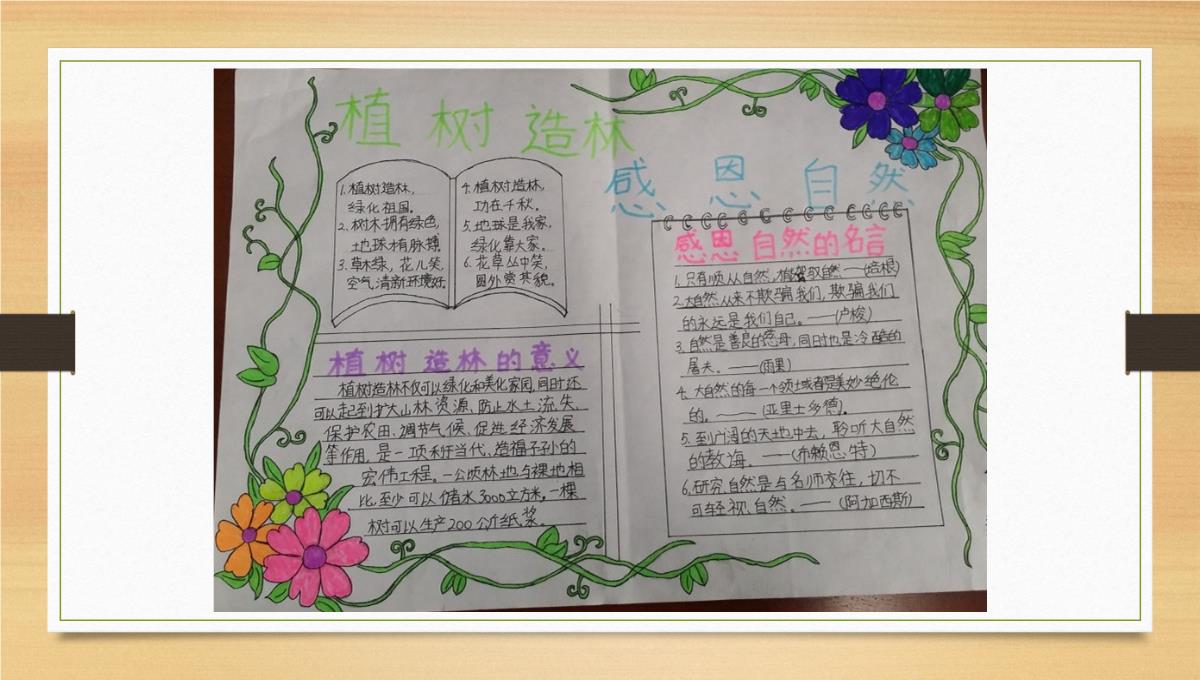 植树造林
感恩自然
1.植树造林,
绿化祖国。
2.树木拥有绿色,
地球才有脉搏。
3.草木绿,花儿笑,
空气清新环境好
4.植树造林,
功在千秋。
5.地球是我家,
绿化靠大家。
6.花草丛中笑,
园外赏其貌。
植树造林的意义
植树造林不仅可以绿化和美化家园,同时还
可以起到扩大山林资源、防止水土流失、
保护农田、调节气候、促进经济发展
等作用,是一项利于当代、造福子孙的
宏伟工程。一公顷林地与裸地相
比,至少可以储水3000立方米。一棵
树可以生产200公斤纸浆。
感恩自然的名言
1.只有顺从自然,才能驾驭自然——(培根)
2.大自然从来不欺骗我们,欺骗我们
的永远是我们自己。——(卢梭)
3.自然是善良的慈母,同时也是冷酷的
屠夫。——(雨果)
4.大自然的每一个领域都是美妙绝伦
的。——(亚里士多德)。
5.到广阔的天地中去,聆听大自然
的教诲。——(布赖恩特)
6.研究自然是与名师交往,切不
可轻视自然。——(阿加西斯)